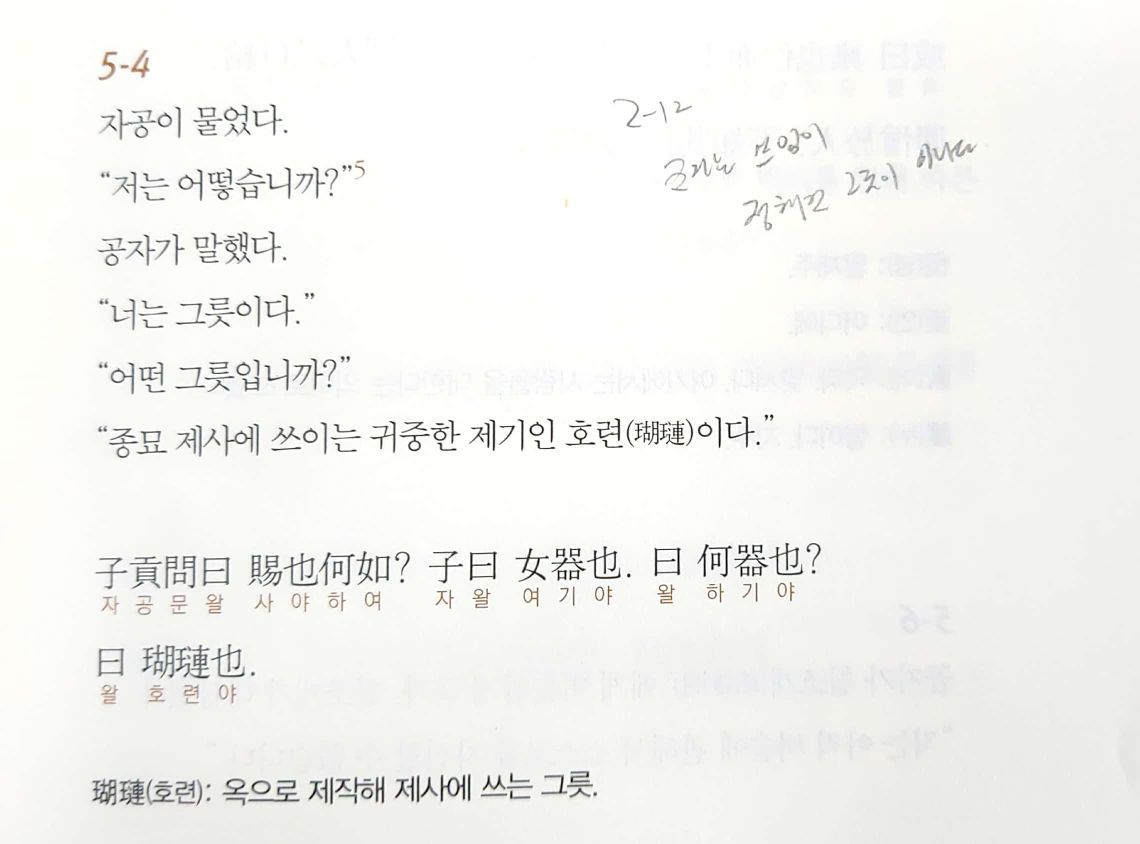 5-4
자공이 물었다.
“저는 어떻습니까?”5
공자가 말했다.
“너는 그릇이다.”
“어떤 그릇입니까?”
“종묘 제사에 쓰이는 귀중한 제기인 호련(瑚璉)이다.”
2-12
군자는 쓰임이
정해진 그릇이 아니다
子貢問曰 賜也何如? 子曰 女器也. 曰 何器也?
자공문왈 사야하여 자왈 여기야 왈 하기야
曰 瑚璉也.
왈 호련야
瑚璉(호련): 옥으로 제작해 제사에 쓰는 그릇.